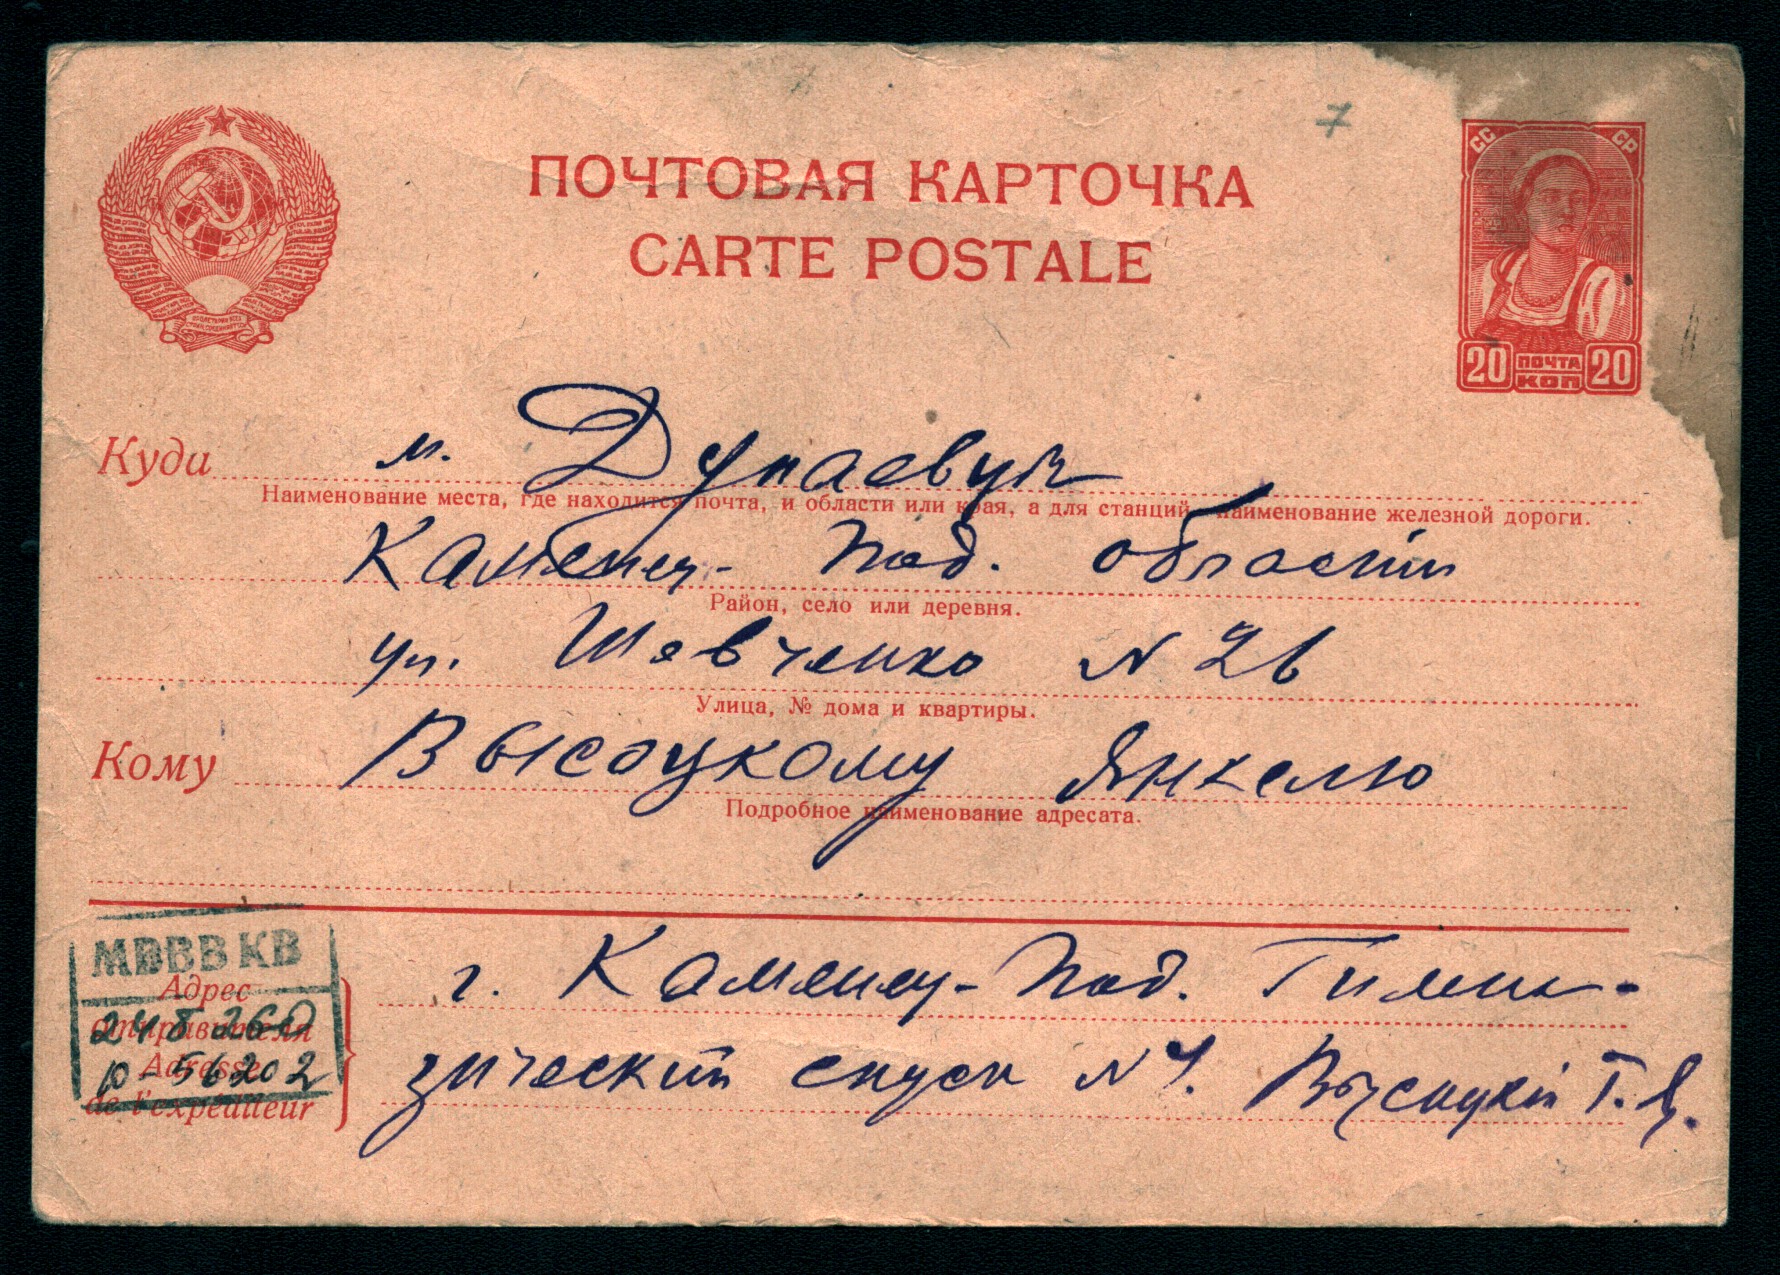 7
СС СР
ПОЧТОВАЯ КАРТОЧКА
CARTE POSTALE
20 ПОЧТА КОП 20
Куда м. Дунаевцы
Наименование места, где находится почта, и области или края, а для станций наименование железной дороги.
Каменец-Под. области
Район, село или деревня.
ул. Шевченко N 26
Улица, № дома и квартиры.
Кому Высоцкому Янкелю
Подробное наименование адресата.
МВВВКВ
Адрес отправителя
Adresse de l'expéditeur
г. Каменец-Под. Гимна-
зический спуск N 4. Высоцкий Г. Я.